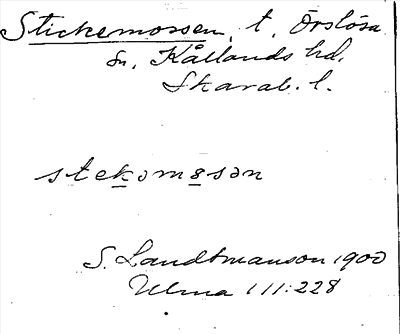 Stickemossen, t. Örslösa
sn, Kållands hd,
Skarab. l.
stekəmɵsən
S. Landtmanson 1900
Ulma 111:228